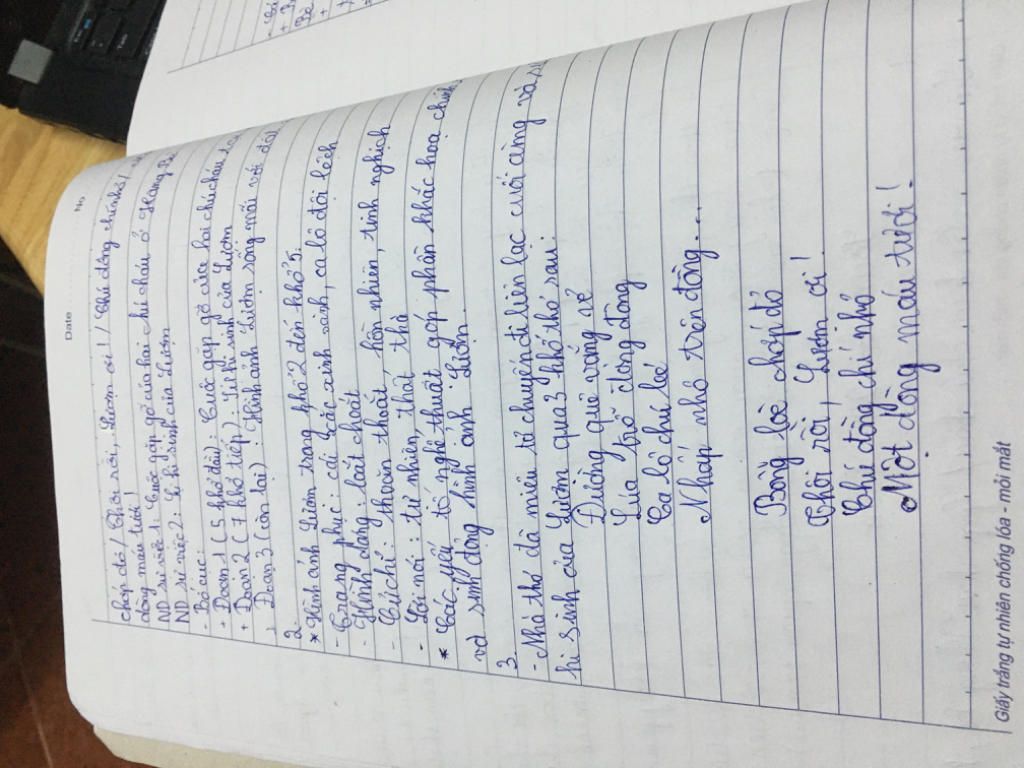 Date No
chớp đỏ / Thôi rồi, Lượm ơi! / Chú đồng chí nhỏ /
dòng máu tươi!
ND sự việc 1: Cuộc gặp gỡ của hai chú cháu ở Hàng Bè
ND sự việc 2: Sự hi sinh của Lượm
- Bố cục:
+ Đoạn 1 (5 khổ đầu): Cuộc gặp gỡ của hai chú cháu
+ Đoạn 2 (7 khổ tiếp): Sự hi sinh của Lượm
Đoạn 3 (còn lại): Hình ảnh Lượm sống mãi với
2.
* Hình ảnh Lượm trong khổ 2 đến khổ 5:
- Trang phục: cái sắc xinh xinh, ca lô đội lệch
- Hình dáng: loắt choắt
- Cử chỉ: thoăn thoắt, hồn nhiên, tinh nghịch
- Lời nói: tự nhiên, thật thà
* Các yếu tố nghệ thuật góp phần khắc hoạ
sinh động hình ảnh Lượm.
3.
- Nhà thơ đã miêu tả chuyến đi liên lạc cuối cùng và
hi sinh của Lượm qua 3 khổ thơ sau:
Đường quê vắng vẻ
Lúa trỗ đòng đòng
Ca lô chú bé
Nhấp nhô trên đồng...
Bỗng loè chớp đỏ
Thôi rồi, Lượm ơi!
Chú đồng chí nhỏ
Một dòng máu tươi!
Giấy trắng tự nhiên chống lóa - mỏi mắt